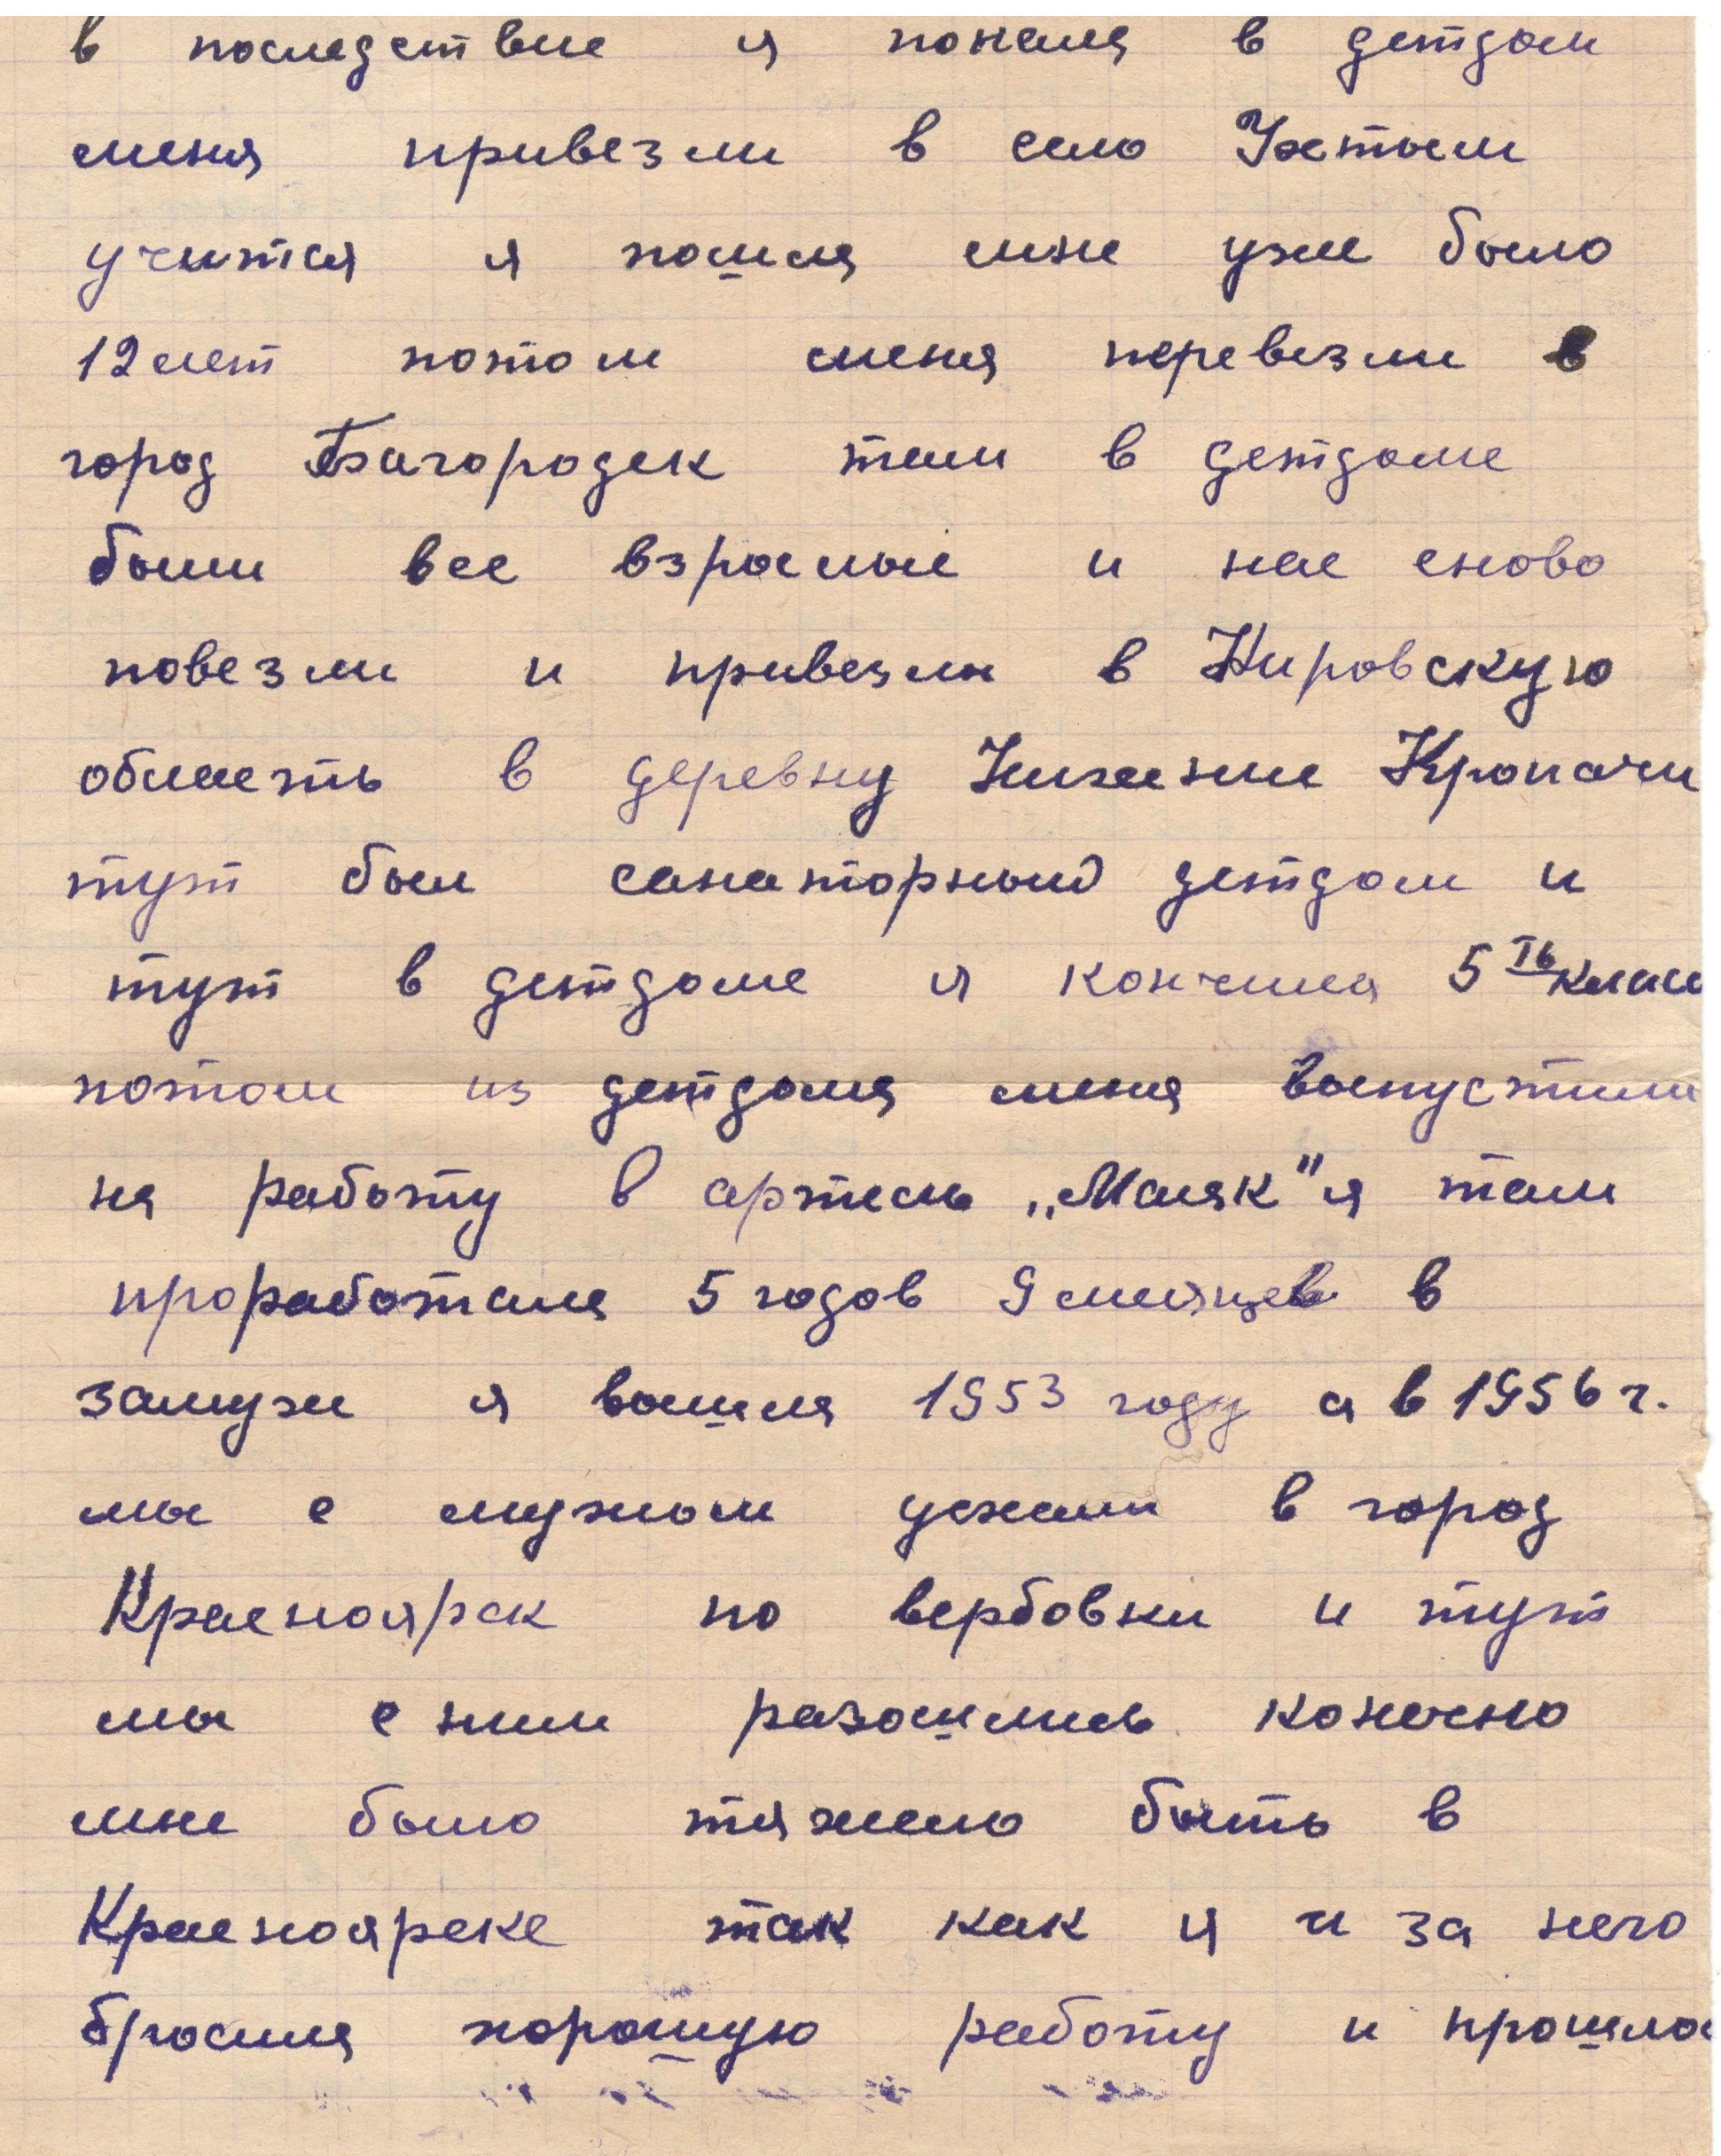 в последствие я попала в детдом
меня привезли в село Ухтым
учится я пошла мне уже было
12 лет потом меня перевезли в
город Багородск там в детдоме
были все взрослые и нас снова
повезли и привезли в Кировскую
область в деревну Нижние Кропачи
тут был санаторный детдом и
тут в детдоме я кончила 5ть класс
потом из детдома меня выпустили
на работу в артель „Маяк" я там
проработала 5 годов 9 месяцев в
замуж я вышла 1953 году а в 1956 г.
мы с мужом уехали в город
Красноярск по вербовки и тут
мы с ним разошлись конечно
мне было тяжело быть в
Красноярске так как я и за него
бросила хорошую работу и прошлос